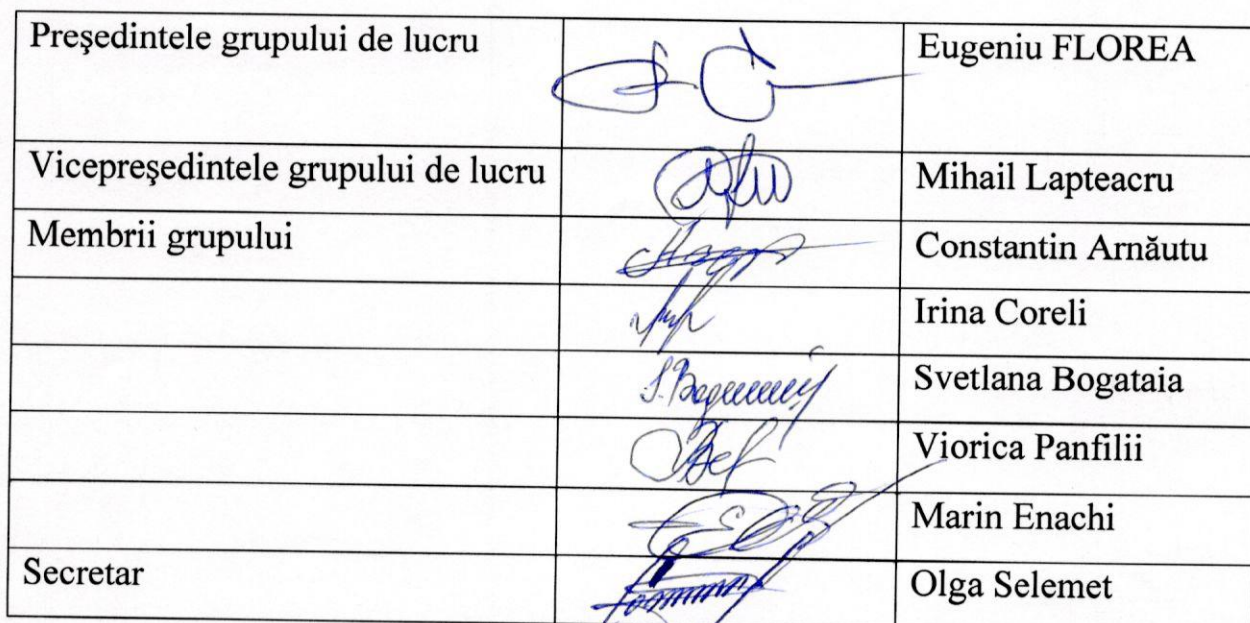 Preşedintele grupului de lucru Eugeniu FLOREA
Vicepreşedintele grupului de lucru Mihail Lapteacru
Membrii grupului Constantin Arnăutu
Irina Coreli
Svetlana Bogataia
Viorica Panfilii
Marin Enachi
Secretar Olga Selemet